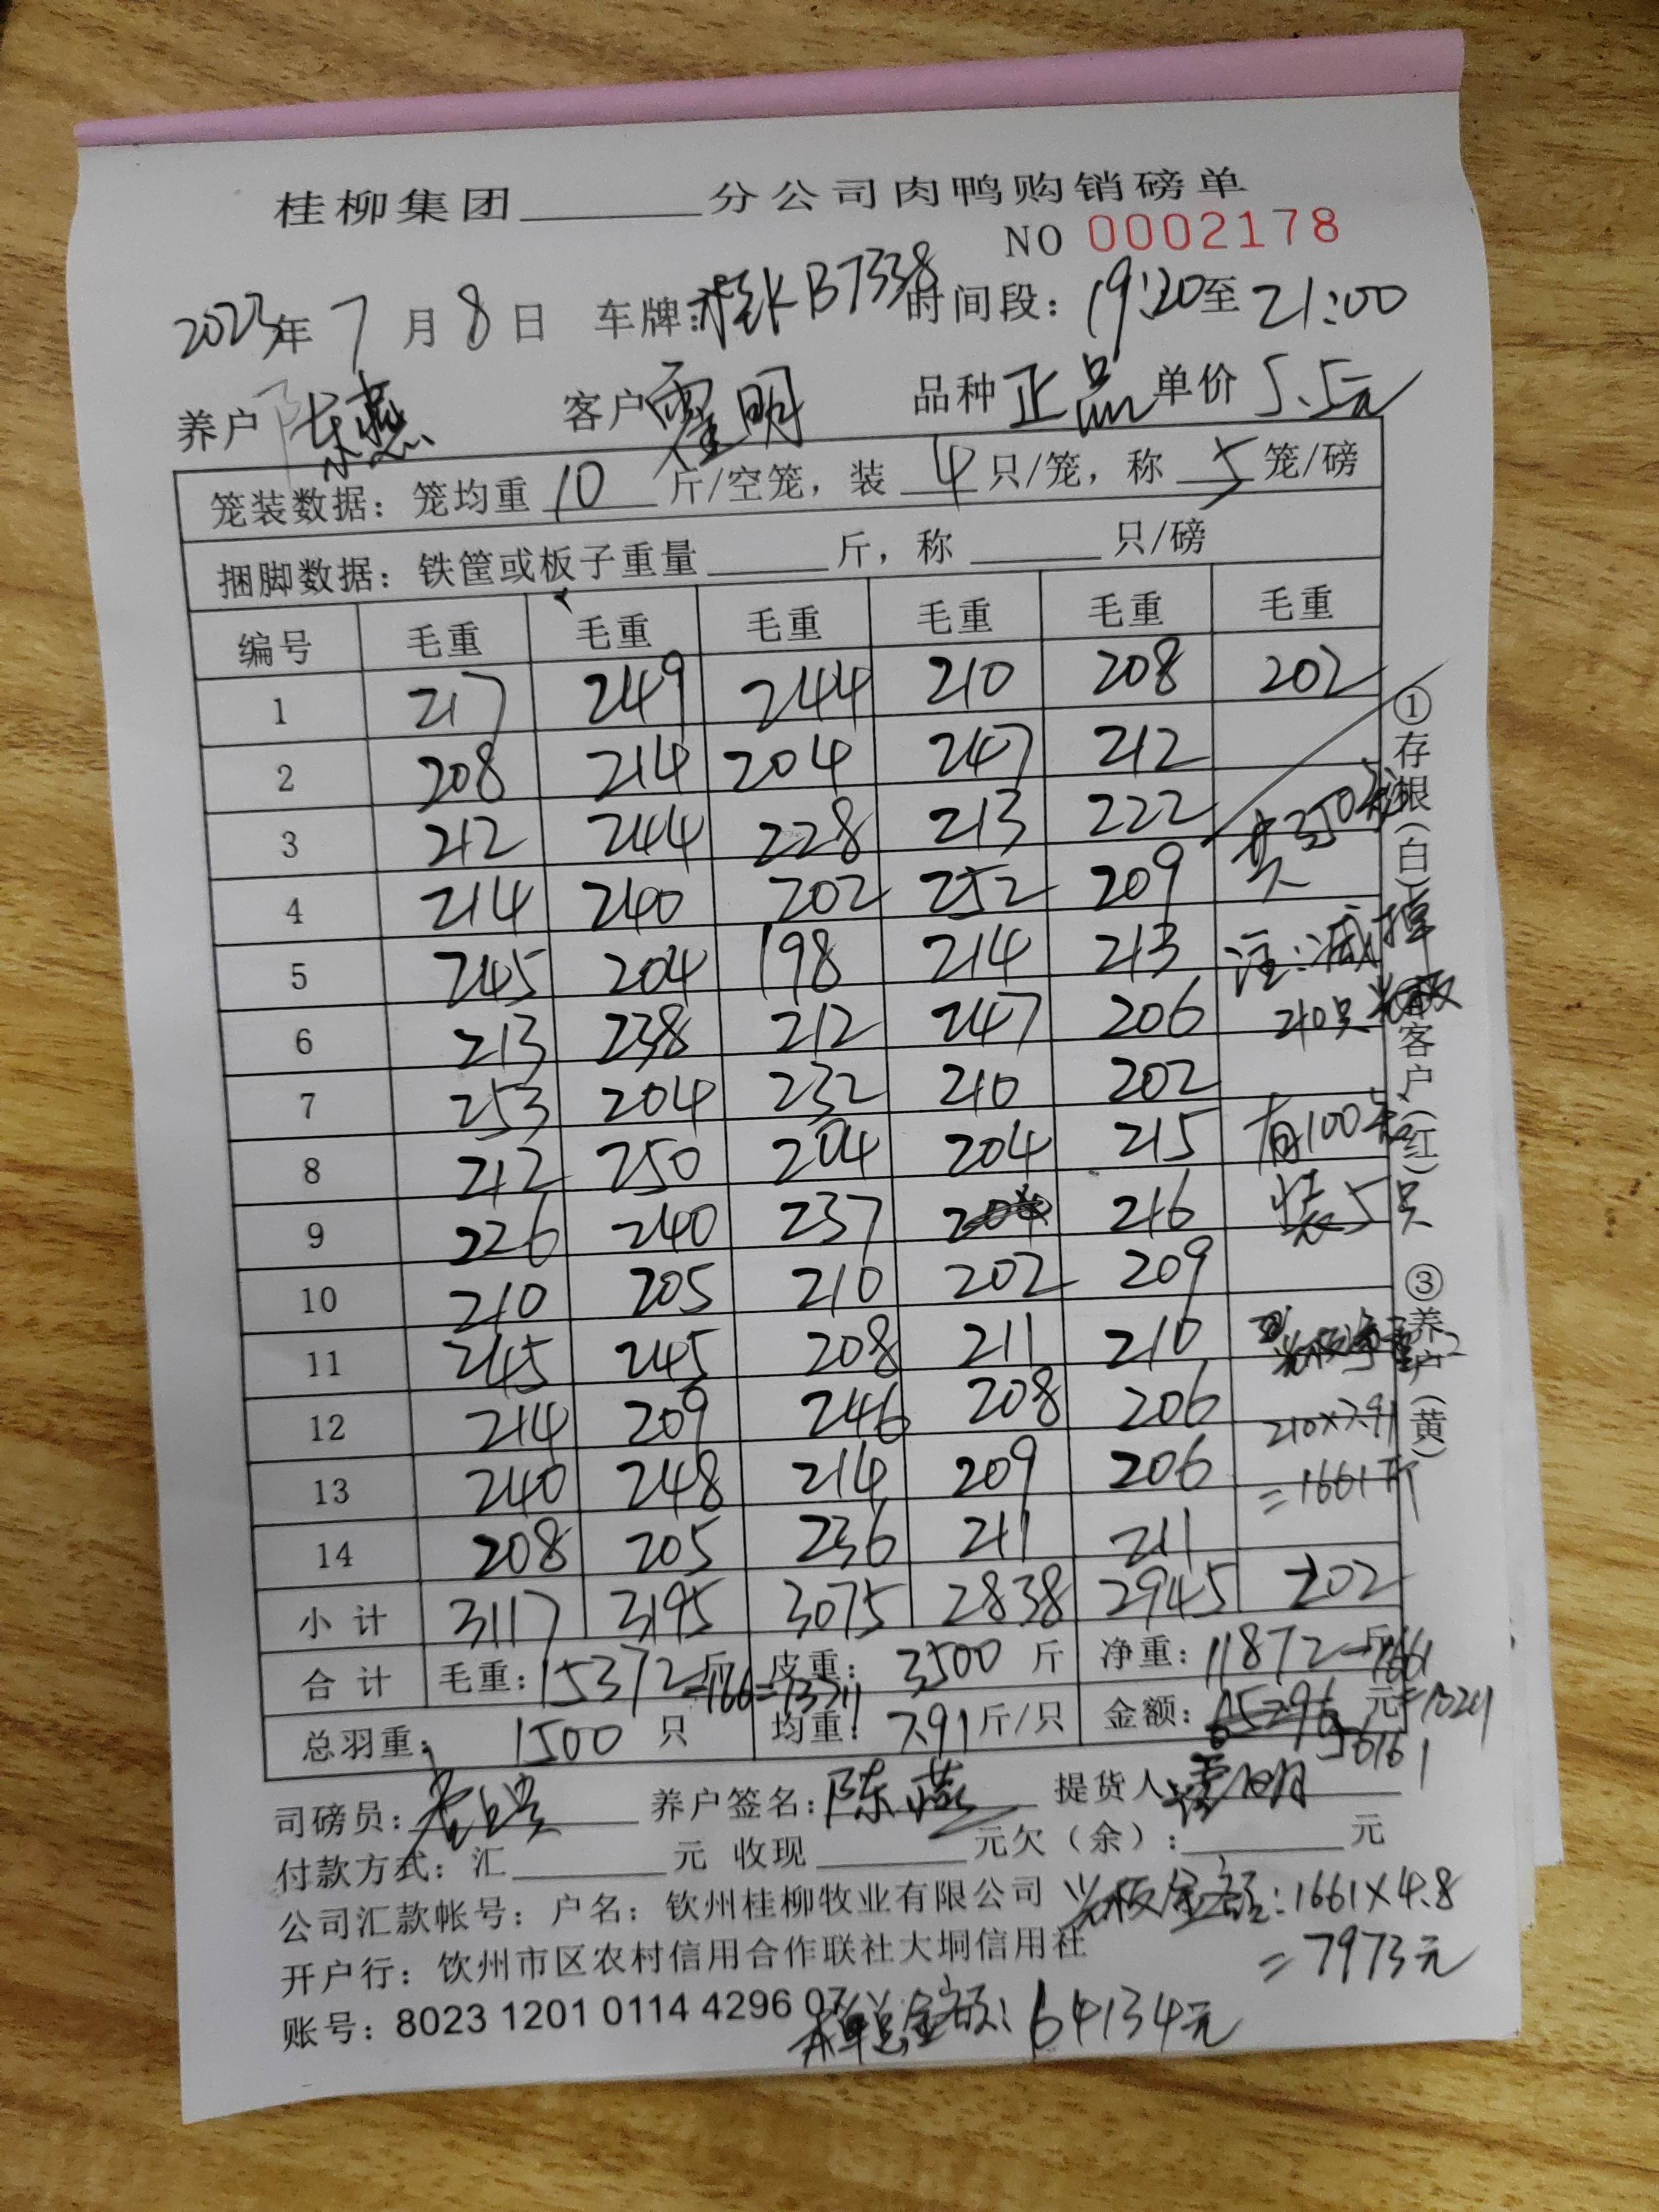 桂柳集团______分公司肉鸭购销磅单
NO 0002178
2023年 7 月 8 日 车牌:桂KB7338 时间段: 19:20至 21:00
养户 陈燕 客户 明 品种 正品 单价 5.5元
笼装数据: 笼均重 10 斤/空笼, 装 4 只/笼, 称 5 笼/磅
捆脚数据: 铁筐或板子重量______斤, 称______只/磅
编号 毛重 毛重 毛重 毛重 毛重 毛重
1 217 249 244 210 208 202
2 208 214 204 247 212
3 212 244 228 213 222 共350笼
4 214 240 202 252 209
5 245 204 198 214 213 注:减掉
6 213 238 212 247 206 210只光板
7 253 204 232 210 202
8 212 250 204 204 215 有100笼
9 226 240 237 216 装5只
10 210 205 210 202 209
11 245 245 208 211 210 光板净重
12 214 209 246 208 206 210×7.91
13 240 248 214 209 206 =1661斤
14 208 205 236 211 211
小计 3117 3195 3075 2838 2945 202
合计 毛重: 15372斤 皮重: 3500 斤 净重: 11872斤-1661
总羽重: 1500 只 均重: 7.91斤/只 金额: 65296 元 =10211
56161
司磅员: 养户签名: 陈燕 提货人 明
付款方式: 汇______元 收现______元欠(余):______元
公司汇款帐号: 户名: 钦州桂柳牧业有限公司 光板金额:1661×4.8
开户行: 钦州市区农村信用合作联社大垌信用社 =7973元
账号: 8023 1201 0114 4296 07 本单总金额: 64134元
①存根(白)
客户(红)
③养户(黄)